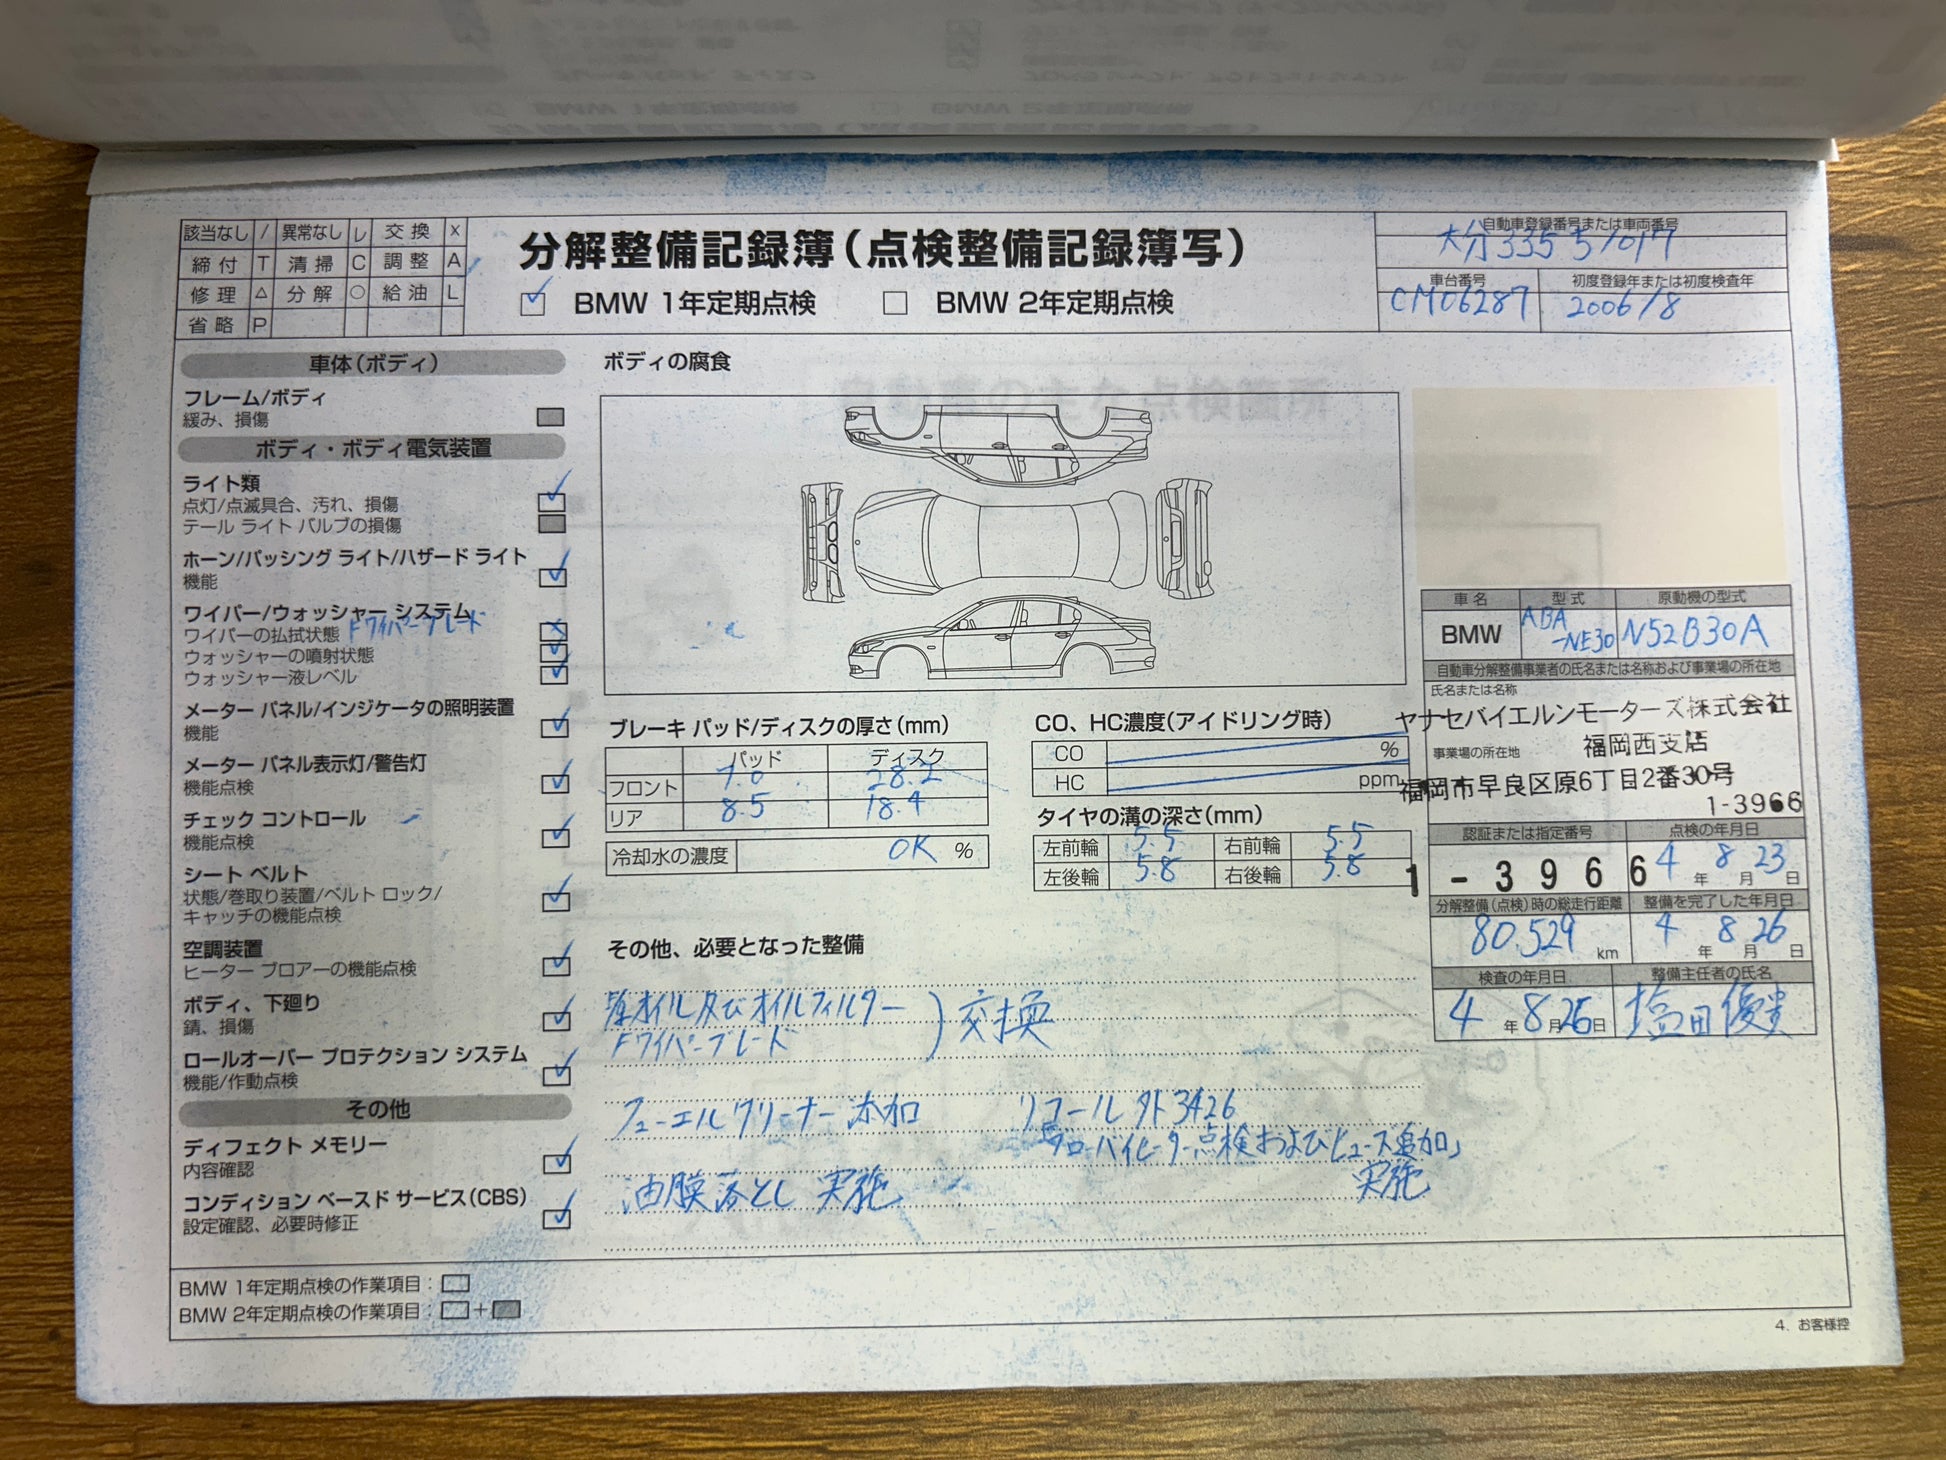 該当なし / 異常なし レ 交換 X
締付 T 清掃 C 調整 A
修理 △ 分解 ○ 給油 L
省略 P
分解整備記録簿(点検整備記録簿写)
BMW 1年定期点検 BMW 2年定期点検
自動車登録番号または車両番号
大分 335 ち 1017
車台番号 初度登録年または初度検査年
CM06287 2006/8
車体(ボディ)
フレーム/ボディ
緩み、損傷
ボディ・ボディ電気装置
ライト類
点灯/点滅具合、汚れ、損傷
テール ライト バルブの損傷
ホーン/パッシング ライト/ハザード ライト
機能
ワイパー/ウォッシャー システム
ワイパーの払拭状態 Fワイパーブレード
ウォッシャーの噴射状態
ウォッシャー液レベル
メーター パネル/インジケータの照明装置
機能
メーター パネル表示灯/警告灯
機能点検
チェック コントロール
機能点検
シート ベルト
状態/巻取り装置/ベルト ロック/
キャッチの機能点検
空調装置
ヒーター ブロアーの機能点検
ボディ、下廻り
錆、損傷
ロールオーバー プロテクション システム
機能/作動点検
その他
ディフェクト メモリー
内容確認
コンディション ベースド サービス(CBS)
設定確認、必要時修正
BMW 1年定期点検の作業項目:
BMW 2年定期点検の作業項目: +
ボディの腐食
ブレーキ パッド/ディスクの厚さ(mm)
パッド ディスク
フロント 7.0 28.2
リア 8.5 18.4
冷却水の濃度 OK %
CO、HC濃度(アイドリング時)
CO %
HC ppm
タイヤの溝の深さ(mm)
左前輪 5.5 右前輪 5.5
左後輪 5.8 右後輪 5.8
その他、必要となった整備
オイル及びオイルフィルター
Fワイパーブレード ) 交換
フューエルクリーナー添加 リコール外3426
「ブローバイヒーター点検およびヒューズ追加」
油膜落とし 実施 実施
車名 型式 原動機の型式
BMW ABA-NE30 N52B30A
自動車分解整備事業者の氏名または名称および事業場の所在地
氏名または名称
ヤナセバイエルンモーターズ株式会社
事業場の所在地 福岡西支店
福岡市早良区原6丁目2番30号
1-3966
認証または指定番号 点検の年月日
1-3966 4年8月23日
分解整備(点検)時の総走行距離 整備を完了した年月日
80,529 km 4年8月26日
検査の年月日 整備主任者の氏名
4年8月26日 塩田優貴
4. お客様控